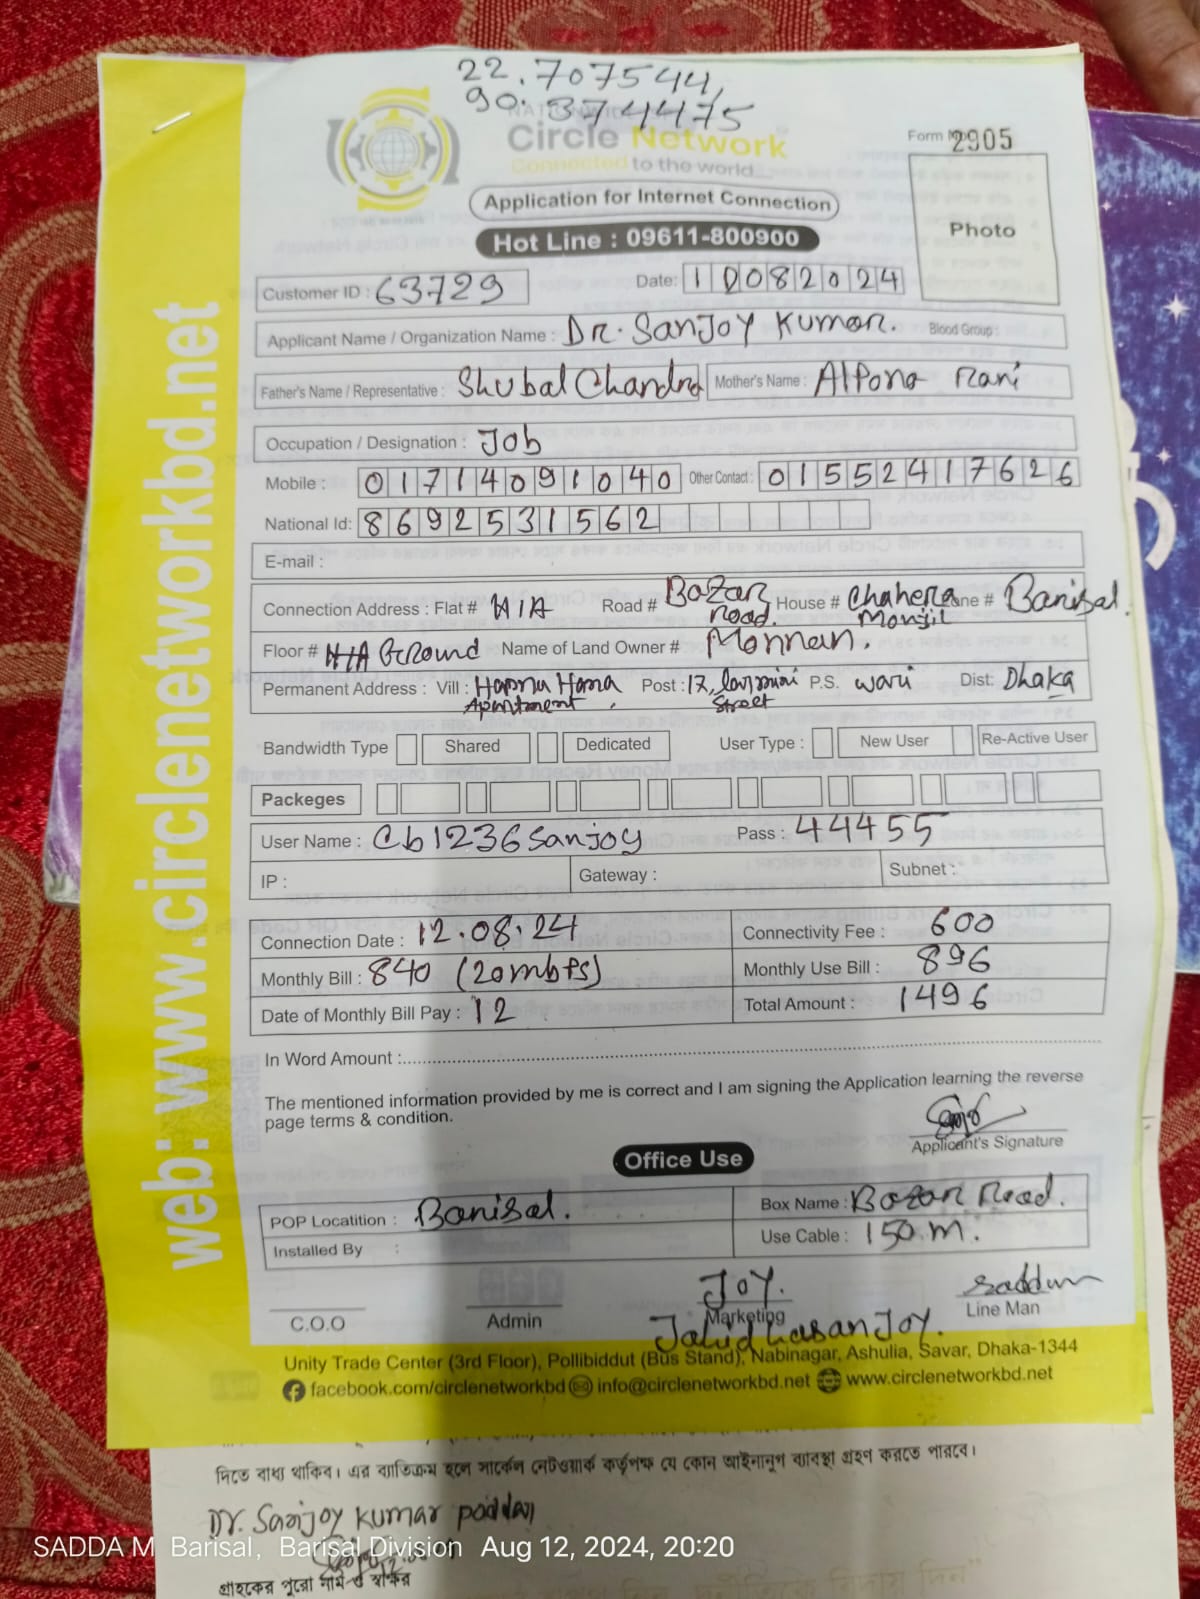 22.707544,
90.374475
NATIONWIDE
Circle Network
Connected to the world
Form No 2905
Photo
Application for Internet Connection
Hot Line : 09611-800900
Customer ID : 63729 Date: 10082024
Applicant Name / Organization Name : DR. SANJOY KUMAR. Blood Group :
Father's Name / Representative : Shubal Chandra Mother's Name : Alpona Rani
Occupation / Designation : Job
Mobile : 01714091040 Other Contact : 01552417626
National Id: 8692531562
E-mail :
Connection Address : Flat # N/A Road # Bazar Road. House # Chahera Monjil Lane # Barisal.
Floor # N/A Ground Name of Land Owner # Monnan.
Permanent Address : Vill : Hasnu Hana Apartment, Post : 17, Street P.S. wari Dist: Dhaka
Bandwidth Type Shared Dedicated User Type : New User Re-Active User
Packeges
User Name : Cb1236sanjoy Pass : 44455
IP : Gateway : Subnet :
Connection Date : 12.08.24 Connectivity Fee : 600
Monthly Bill : 840 (20mbps) Monthly Use Bill : 896
Date of Monthly Bill Pay : 12 Total Amount : 1496
In Word Amount :
The mentioned information provided by me is correct and I am signing the Application learning the reverse
page terms & condition.
Applicant's Signature
Office Use
POP Locatition : Barisal. Box Name : Bazar Road.
Installed By : Use Cable : 150 m.
JOY. Saddam
C.O.O Admin Marketing Line Man
Jahid hasan Joy.
Unity Trade Center (3rd Floor), Pollibiddut (Bus Stand), Nabinagar, Ashulia, Savar, Dhaka-1344
facebook.com/circlenetworkbd info@circlenetworkbd.net www.circlenetworkbd.net
web: www.circlenetworkbd.net
দিতে বাধ্য থাকিব। এর ব্যতিক্রম হলে সার্কেল নেটওয়ার্ক কর্তৃপক্ষ যে কোন আইনানুগ ব্যাবস্থা গ্রহণ করতে পারবে।
Dr. Sanjoy Kumar Poddar
SADDA M Barisal, Barisal Division Aug 12, 2024, 20:20
গ্রাহকের পুরো নাম ও স্বাক্ষর